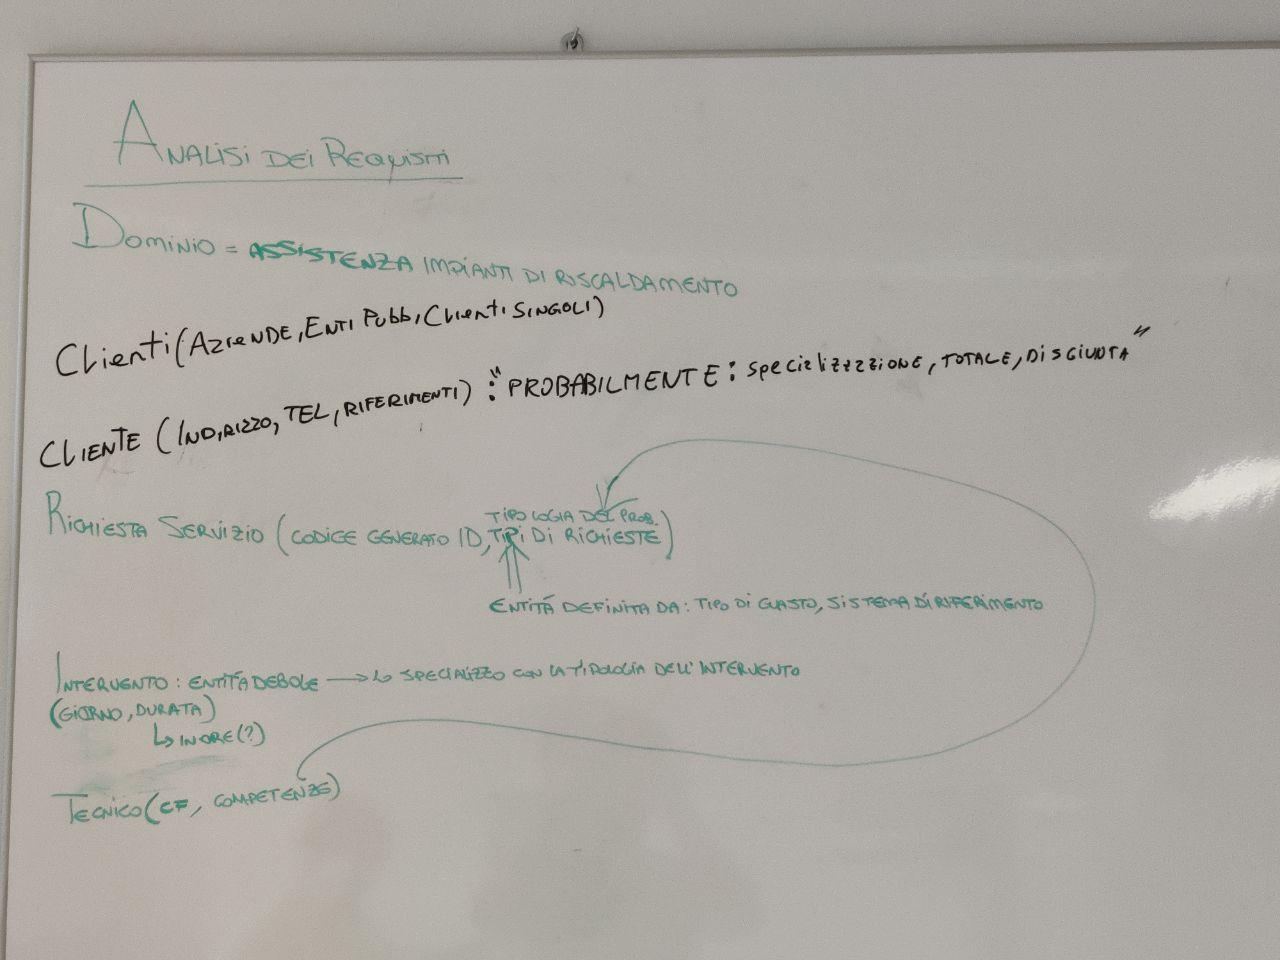 ANALISI DEI REQUISITI
DOMINIO = ASSISTENZA IMPIANTI DI RISCALDAMENTO
Clienti (AZIENDE, ENTI Pubb, Clienti SINGOLI)
CLIENTE (INDIRIZZO, TEL, RIFERIMENTI) : "PROBABILMENTE : specializzazione, TOTALE, DISGIUNTA"
TIPOLOGIA DEL PROB.
RICHIESTA SERVIZIO (CODICE GENERATO ID, TIPI DI RICHIESTE)
ENTITÁ DEFINITA DA : TIPO DI GUASTO, SISTEMA DI RIFERIMENTO
INTERVENTO : ENTITÁ DEBOLE → LO SPECIALIZZO CON LA TIPOLOGIA DELL'INTERVENTO
(GIORNO, DURATA)
↳ IN ORE (?)
TECNICO (CF, COMPETENZE)